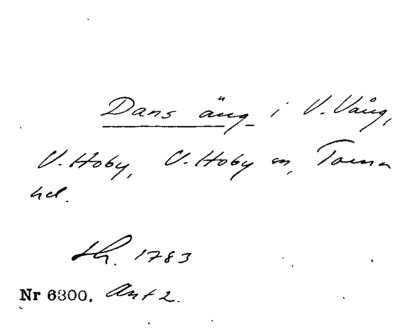 Dans äng i V. Vång,
V. Hoby, V. Hoby sn, Torna
hd.
sh. 1783
Nr 6300. Ant 2.